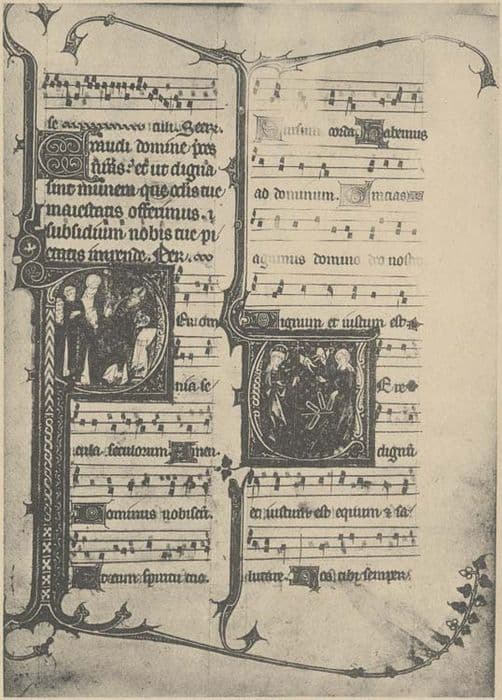 se culi. Secr.
xaudi domine pces
nr̃as: et ut digna
sint munera que oculis tue
maiestatis offerimus. ⁊
subsidium nobis tue pi
etatis impende. Per.
Per om
nia se
cula seculorum Amen.
Dominus vobiscū.
Et cum spiritu tuo.
Sursum corda. Habemus
ad dominum. Gracias
agamus domino deo nostro
Dignum et iustum est
Ere
dignū
et iustum est equum ⁊ sa
lutare. Nos tibi semper